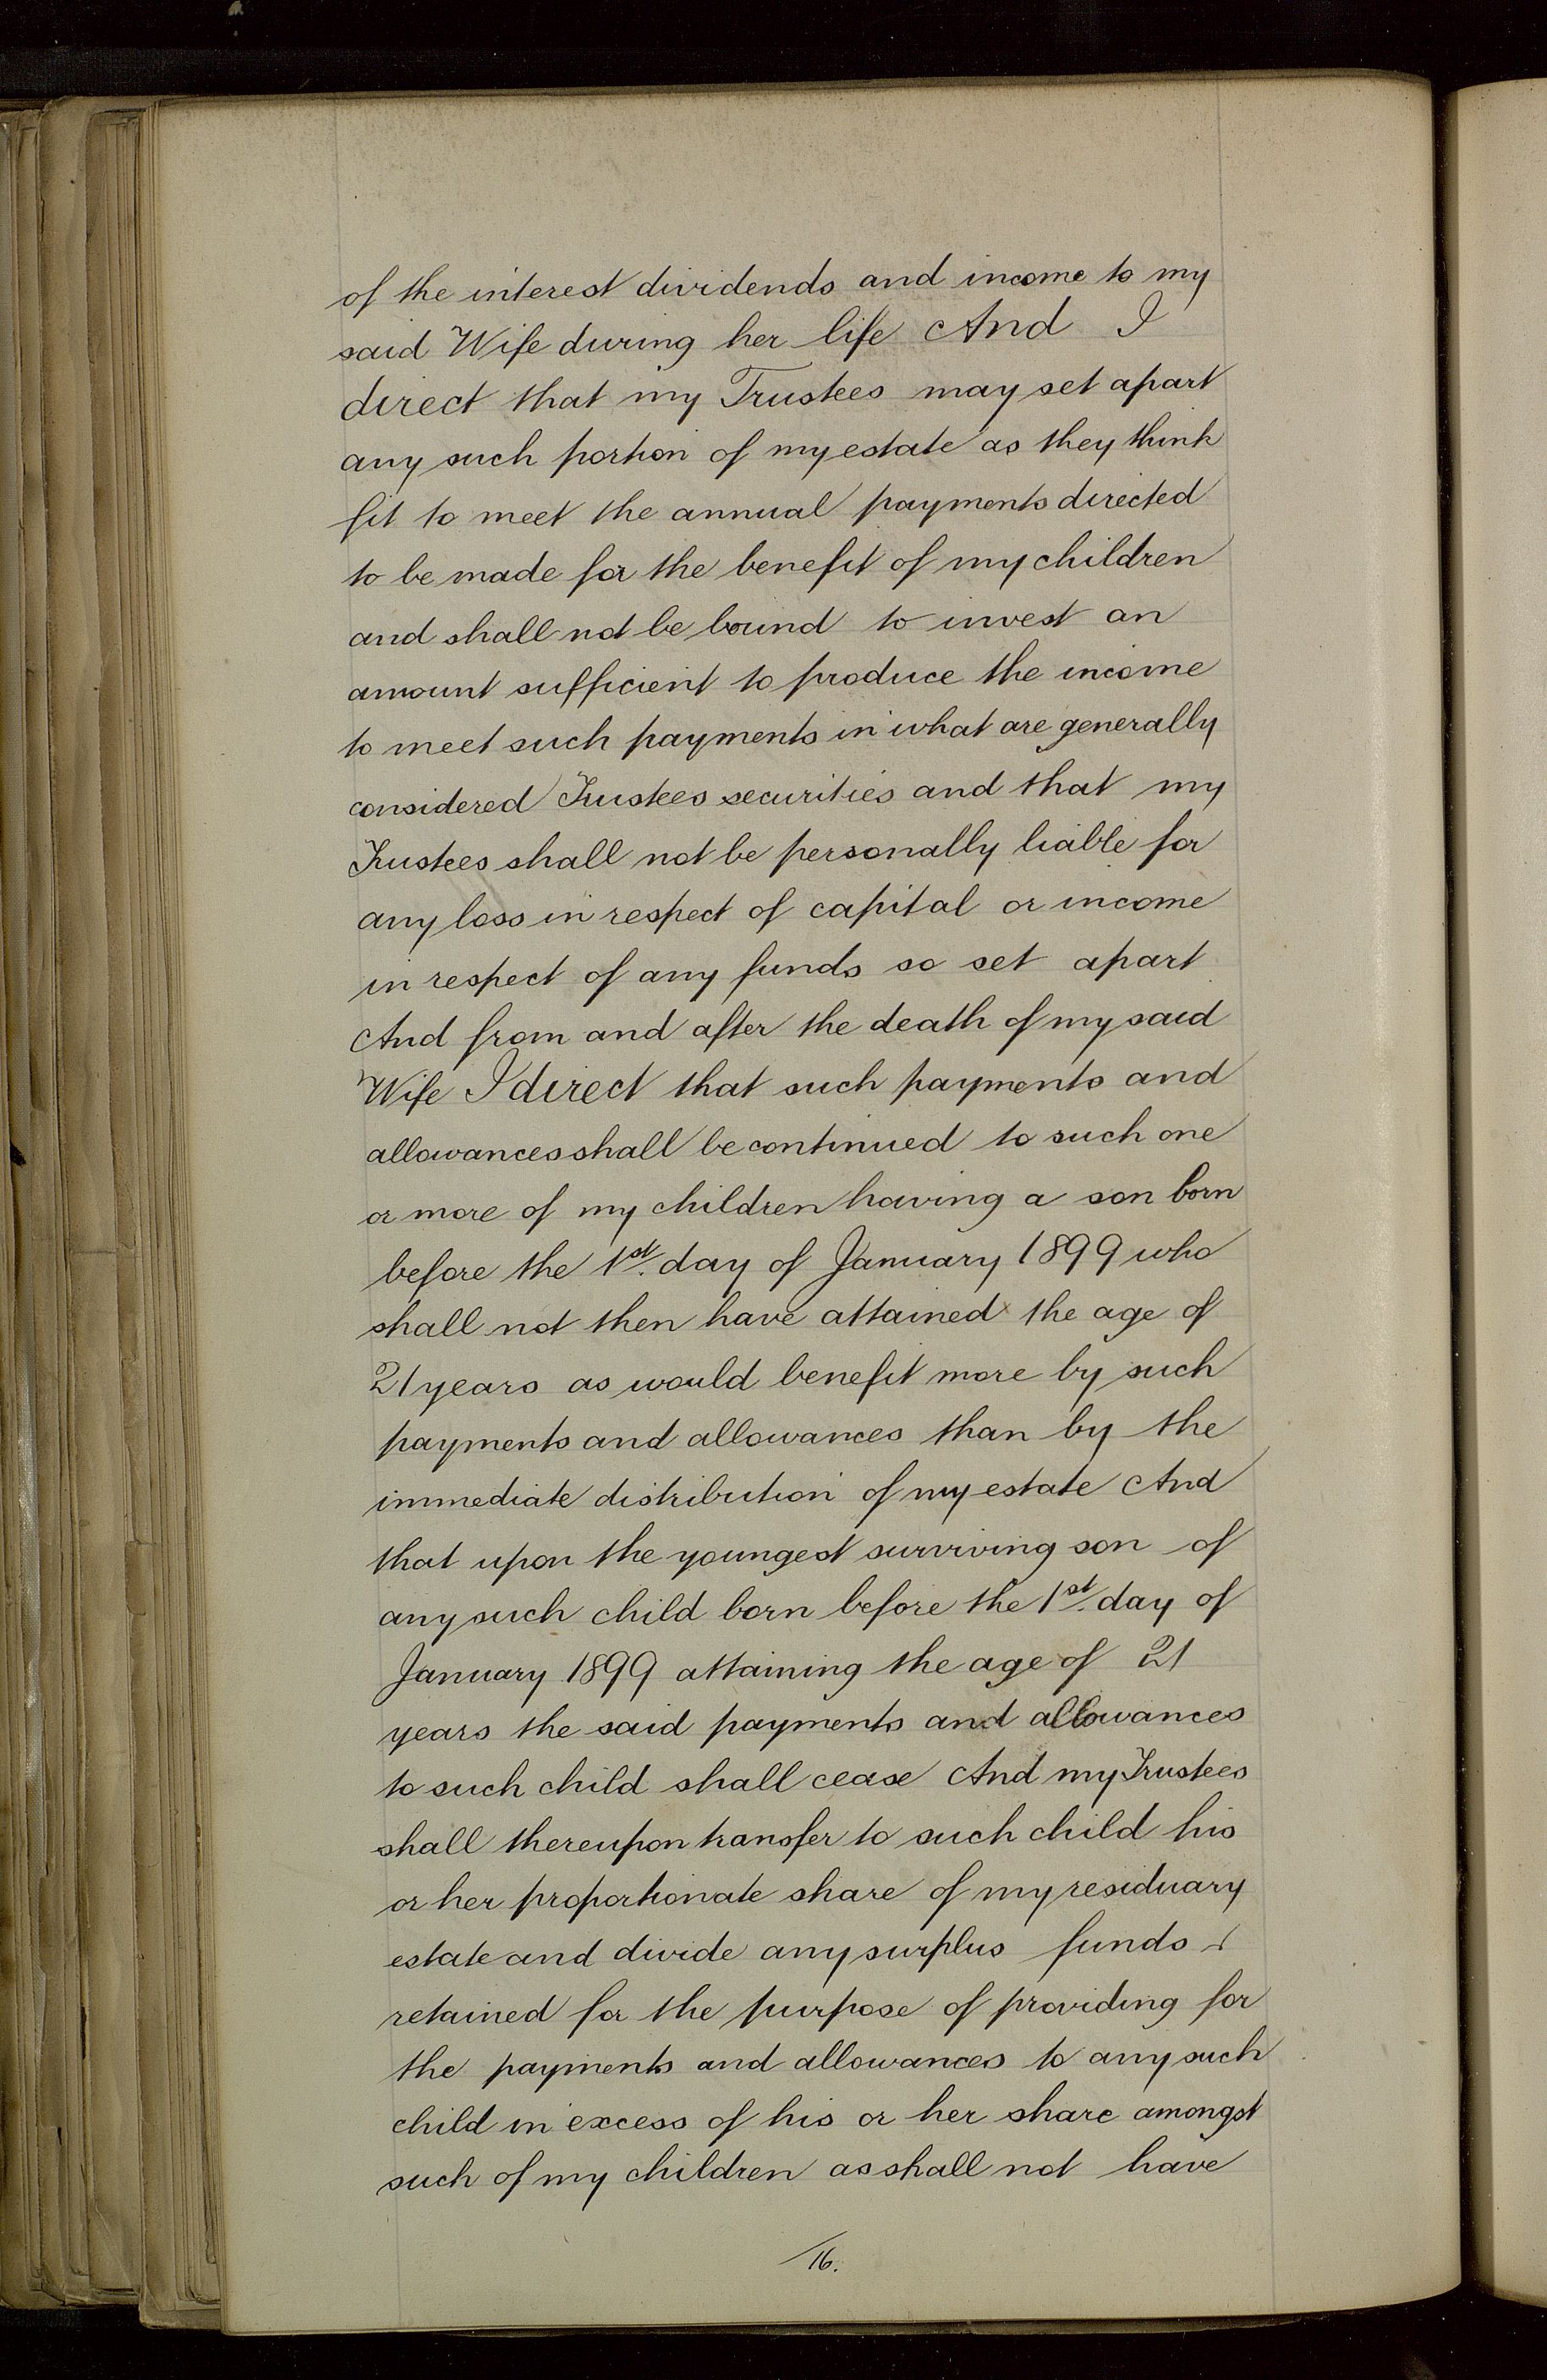 of the interest dividends and income to my
said Wife during her life And I
direct that my Trustees may set apart
any such portion of my estate as they think
fit to meet the annual payments directed
to be made for the benefit of my children
and shall not be bound to invest an
amount sufficient to produce the income
to meet such payments in what are generally
considered Trustees securities and that my
Trustees shall not be personally liable for
any loss in respect of capital or income
in respect of any funds so set apart
And from and after the death of my said
Wife I direct that such payments and
allowances shall be continued to such one
or more of my children having a son born
before the 1st. day of January 1899 who
shall not then have attained the age of
21 years as would benefit more by such
payments and allowances than by the
immediate distribution of my estate And
that upon the youngest surviving son of
any such child born before the 1st. day of
January 1899 attaining the age of 21
years the said payments and allowances
to such child shall cease And my Trustees
shall thereupon transfer to such child his
or her proportionate share of my residuary
estate and divide any surplus funds
retained for the purpose of providing for
the payments and allowances to any such
child in excess of his or her share amongst
such of my children as shall not have
16.